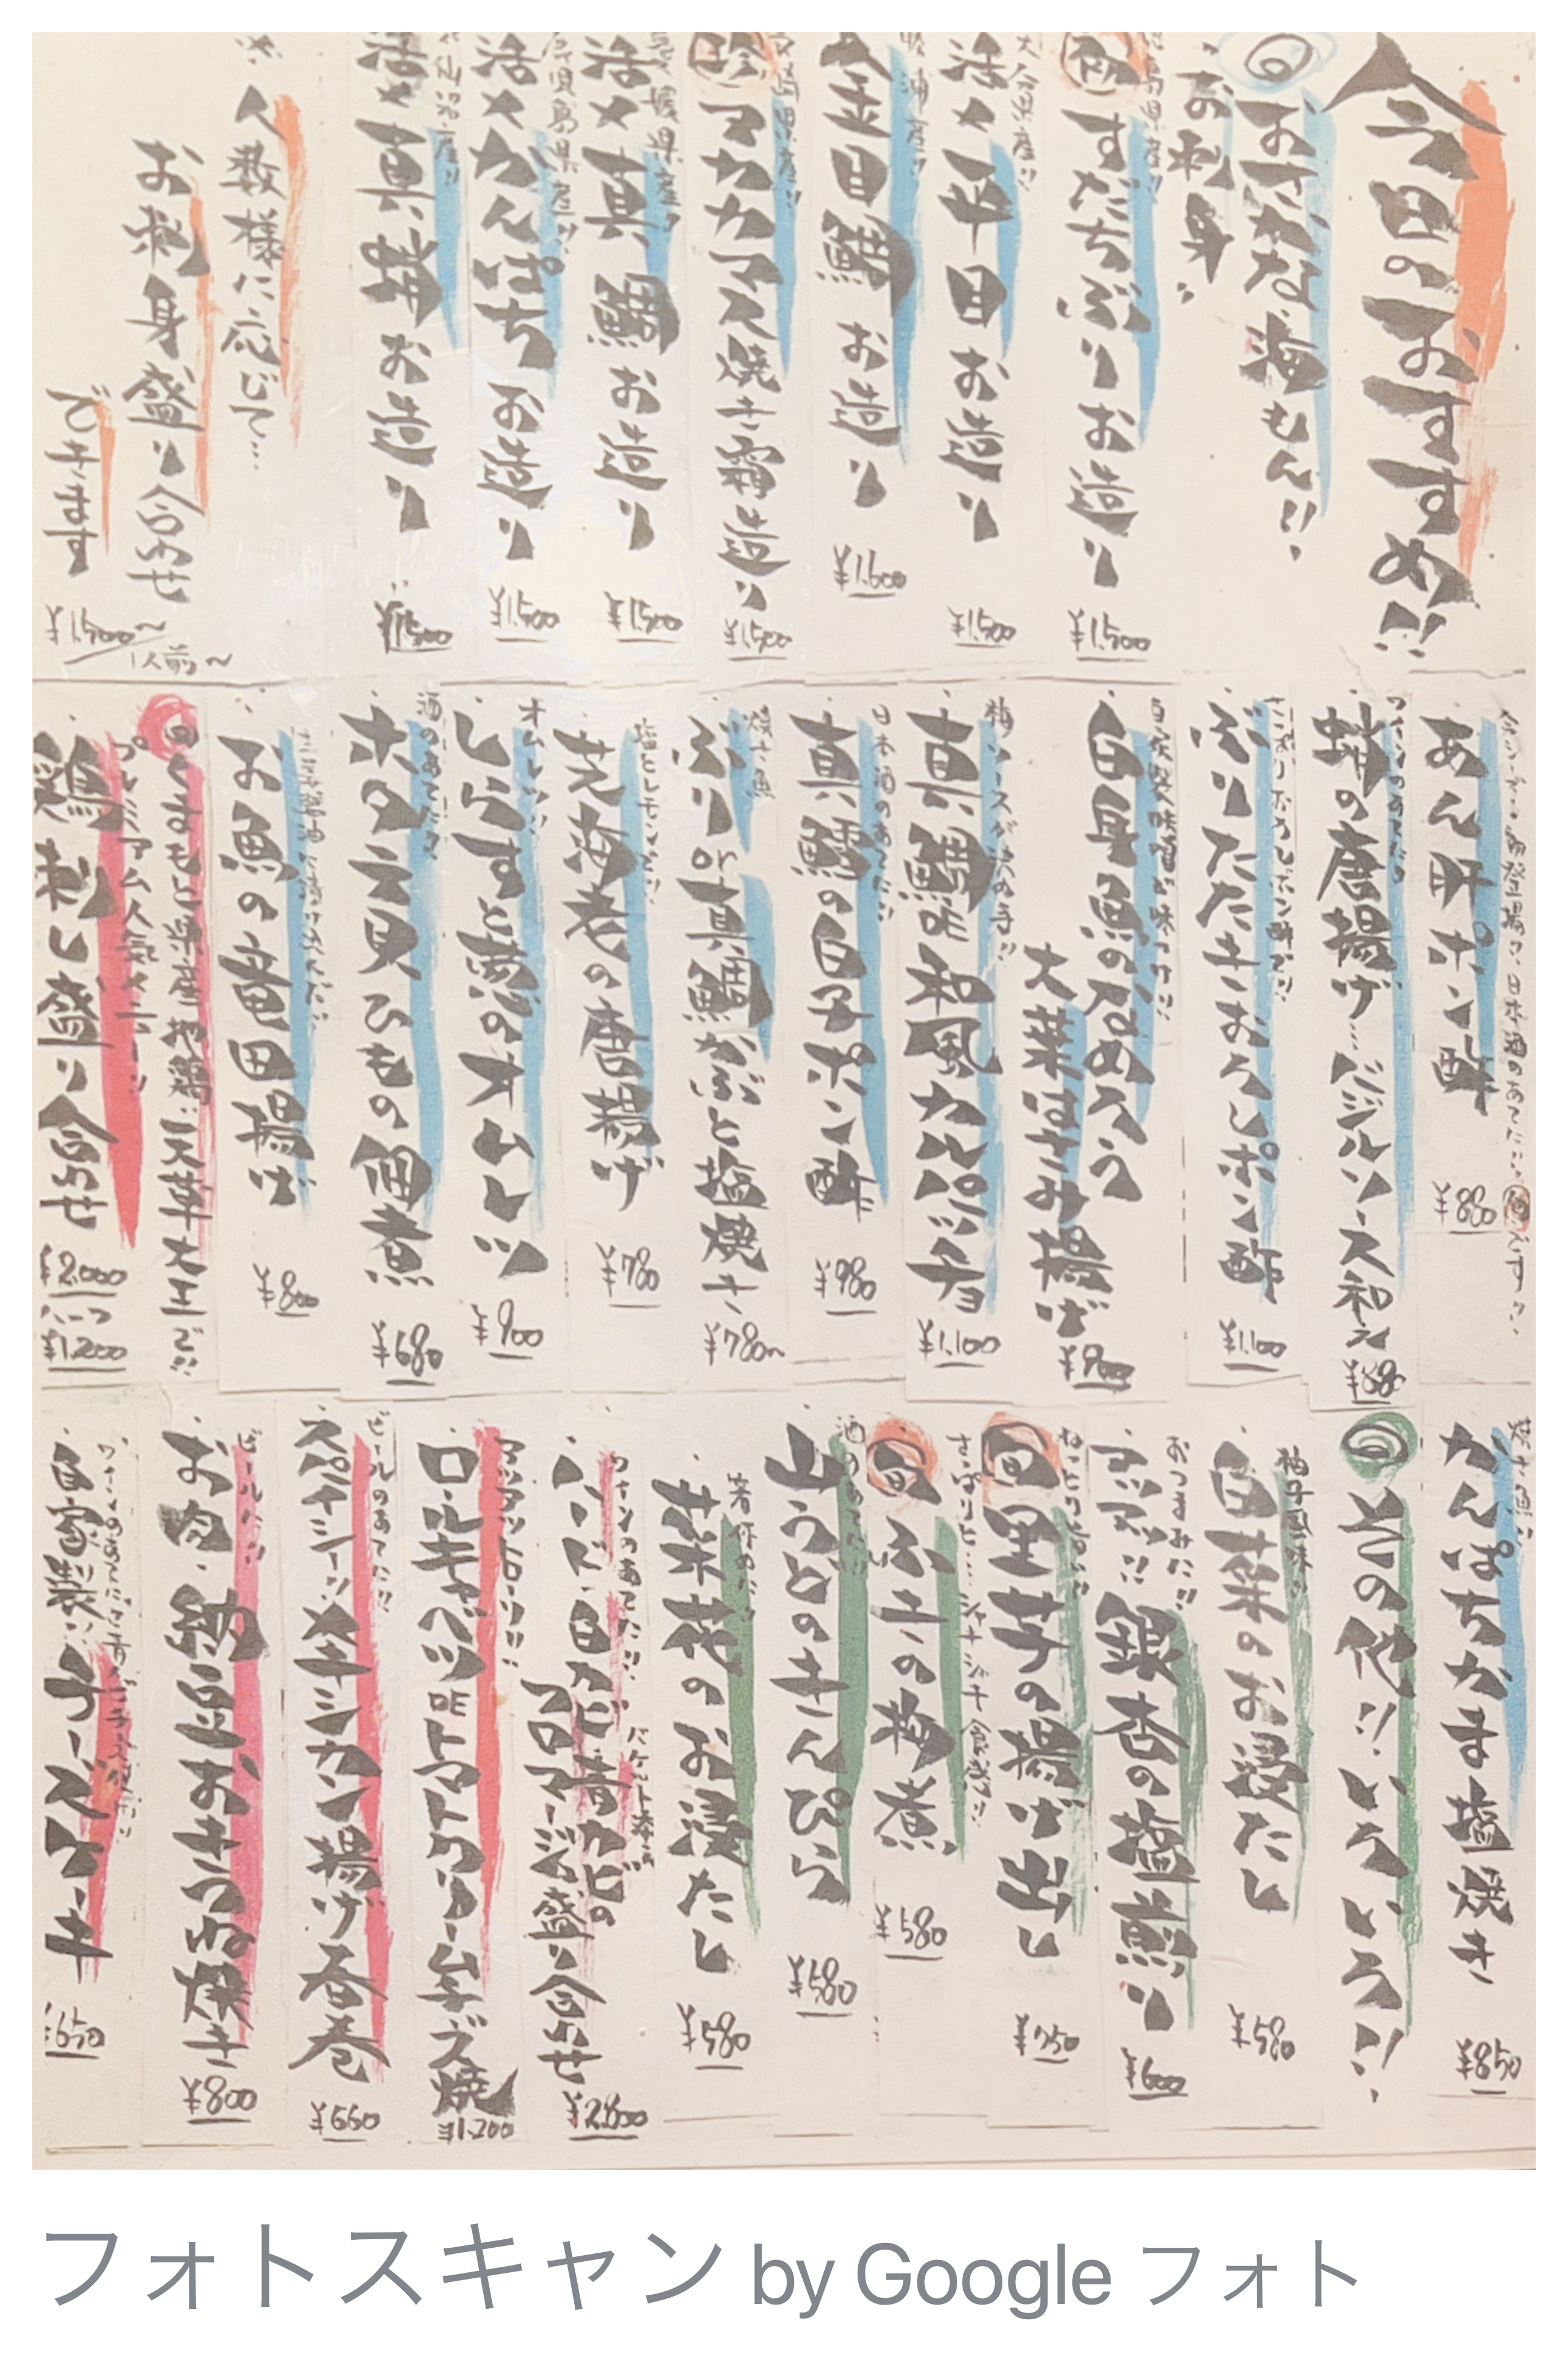 今日のおすすめ!!
旬
おさかな・海もん!!
お刺身
徳島県産!!
すだちぶりお造り
¥1,500
大分県産!!
活〆平目お造り
¥1,500
金目鯛お造り
¥1,600
マカマス焼き霜造り
¥1,500
愛媛県産!!
活〆真鯛お造り
¥1,500
鹿児島県産!!
活〆かんぱちお造り
¥1,500
気仙沼産!!
活〆真蛸お造り
¥1,500
人数様に応じて…
お刺身盛り合わせ
できます
¥1,500〜
1人前〜
あん肝ポン酢
¥880
ワインのあてに
蛸の唐揚げ…バジルソース和え
¥880
さっぱりおろしポン酢で!!
ぶりたたきおろしポン酢
¥1,100
自家製味噌が味つけ!!
白身魚のなめろう
大葉はさみ揚げ
¥900
梅ソースが決め手!!
真鯛の和風カルパッチョ
¥1,100
日本酒のあてに!!
真鱈の白子ポン酢
¥980
焼き魚
ぶりor真鯛かぶと塩焼き
¥780〜
塩とレモンで!!
花海老の唐揚げ
¥780
オムレツ!!
しらすと葱のオムレツ
¥900
酒のあてに
ホタテ貝ひもの佃煮
¥680
お魚の竜田揚げ
¥800
くまもと県産地鶏!!天草大王で!!
プレミアム人気メニュー!!
鶏刺し盛り合わせ
¥2,000
ハーフ
¥1,200
焼き魚!!
かんぱちかま塩焼き
¥850
旬
その他!!いろいろ!!
柚子風味!!
白菜のお浸たし
¥580
おつまみに!!
銀杏の塩煎り
¥600
旬
里芋の揚げ出し
¥750
さっぱりと…シャキシャキ食感!!
旬
ふきの梅煮
¥580
酒のあてに!!
山うどのきんぴら
¥580
菜花のお浸たし
¥580
ワインのあてに!!
バケット
白カビ青カビの
フロマージュ盛り合わせ
¥2,800
アツアツとろーり!!
ロールキャベツのトマトクリームチーズ焼
¥1,200
ビールのあてに!!
メキシカン揚げ春巻
¥650
ビールに!!
お肉・納豆おきつね焼き
¥800
自家製!!チーズケーキ
¥650
フォトスキャン by Google フォト